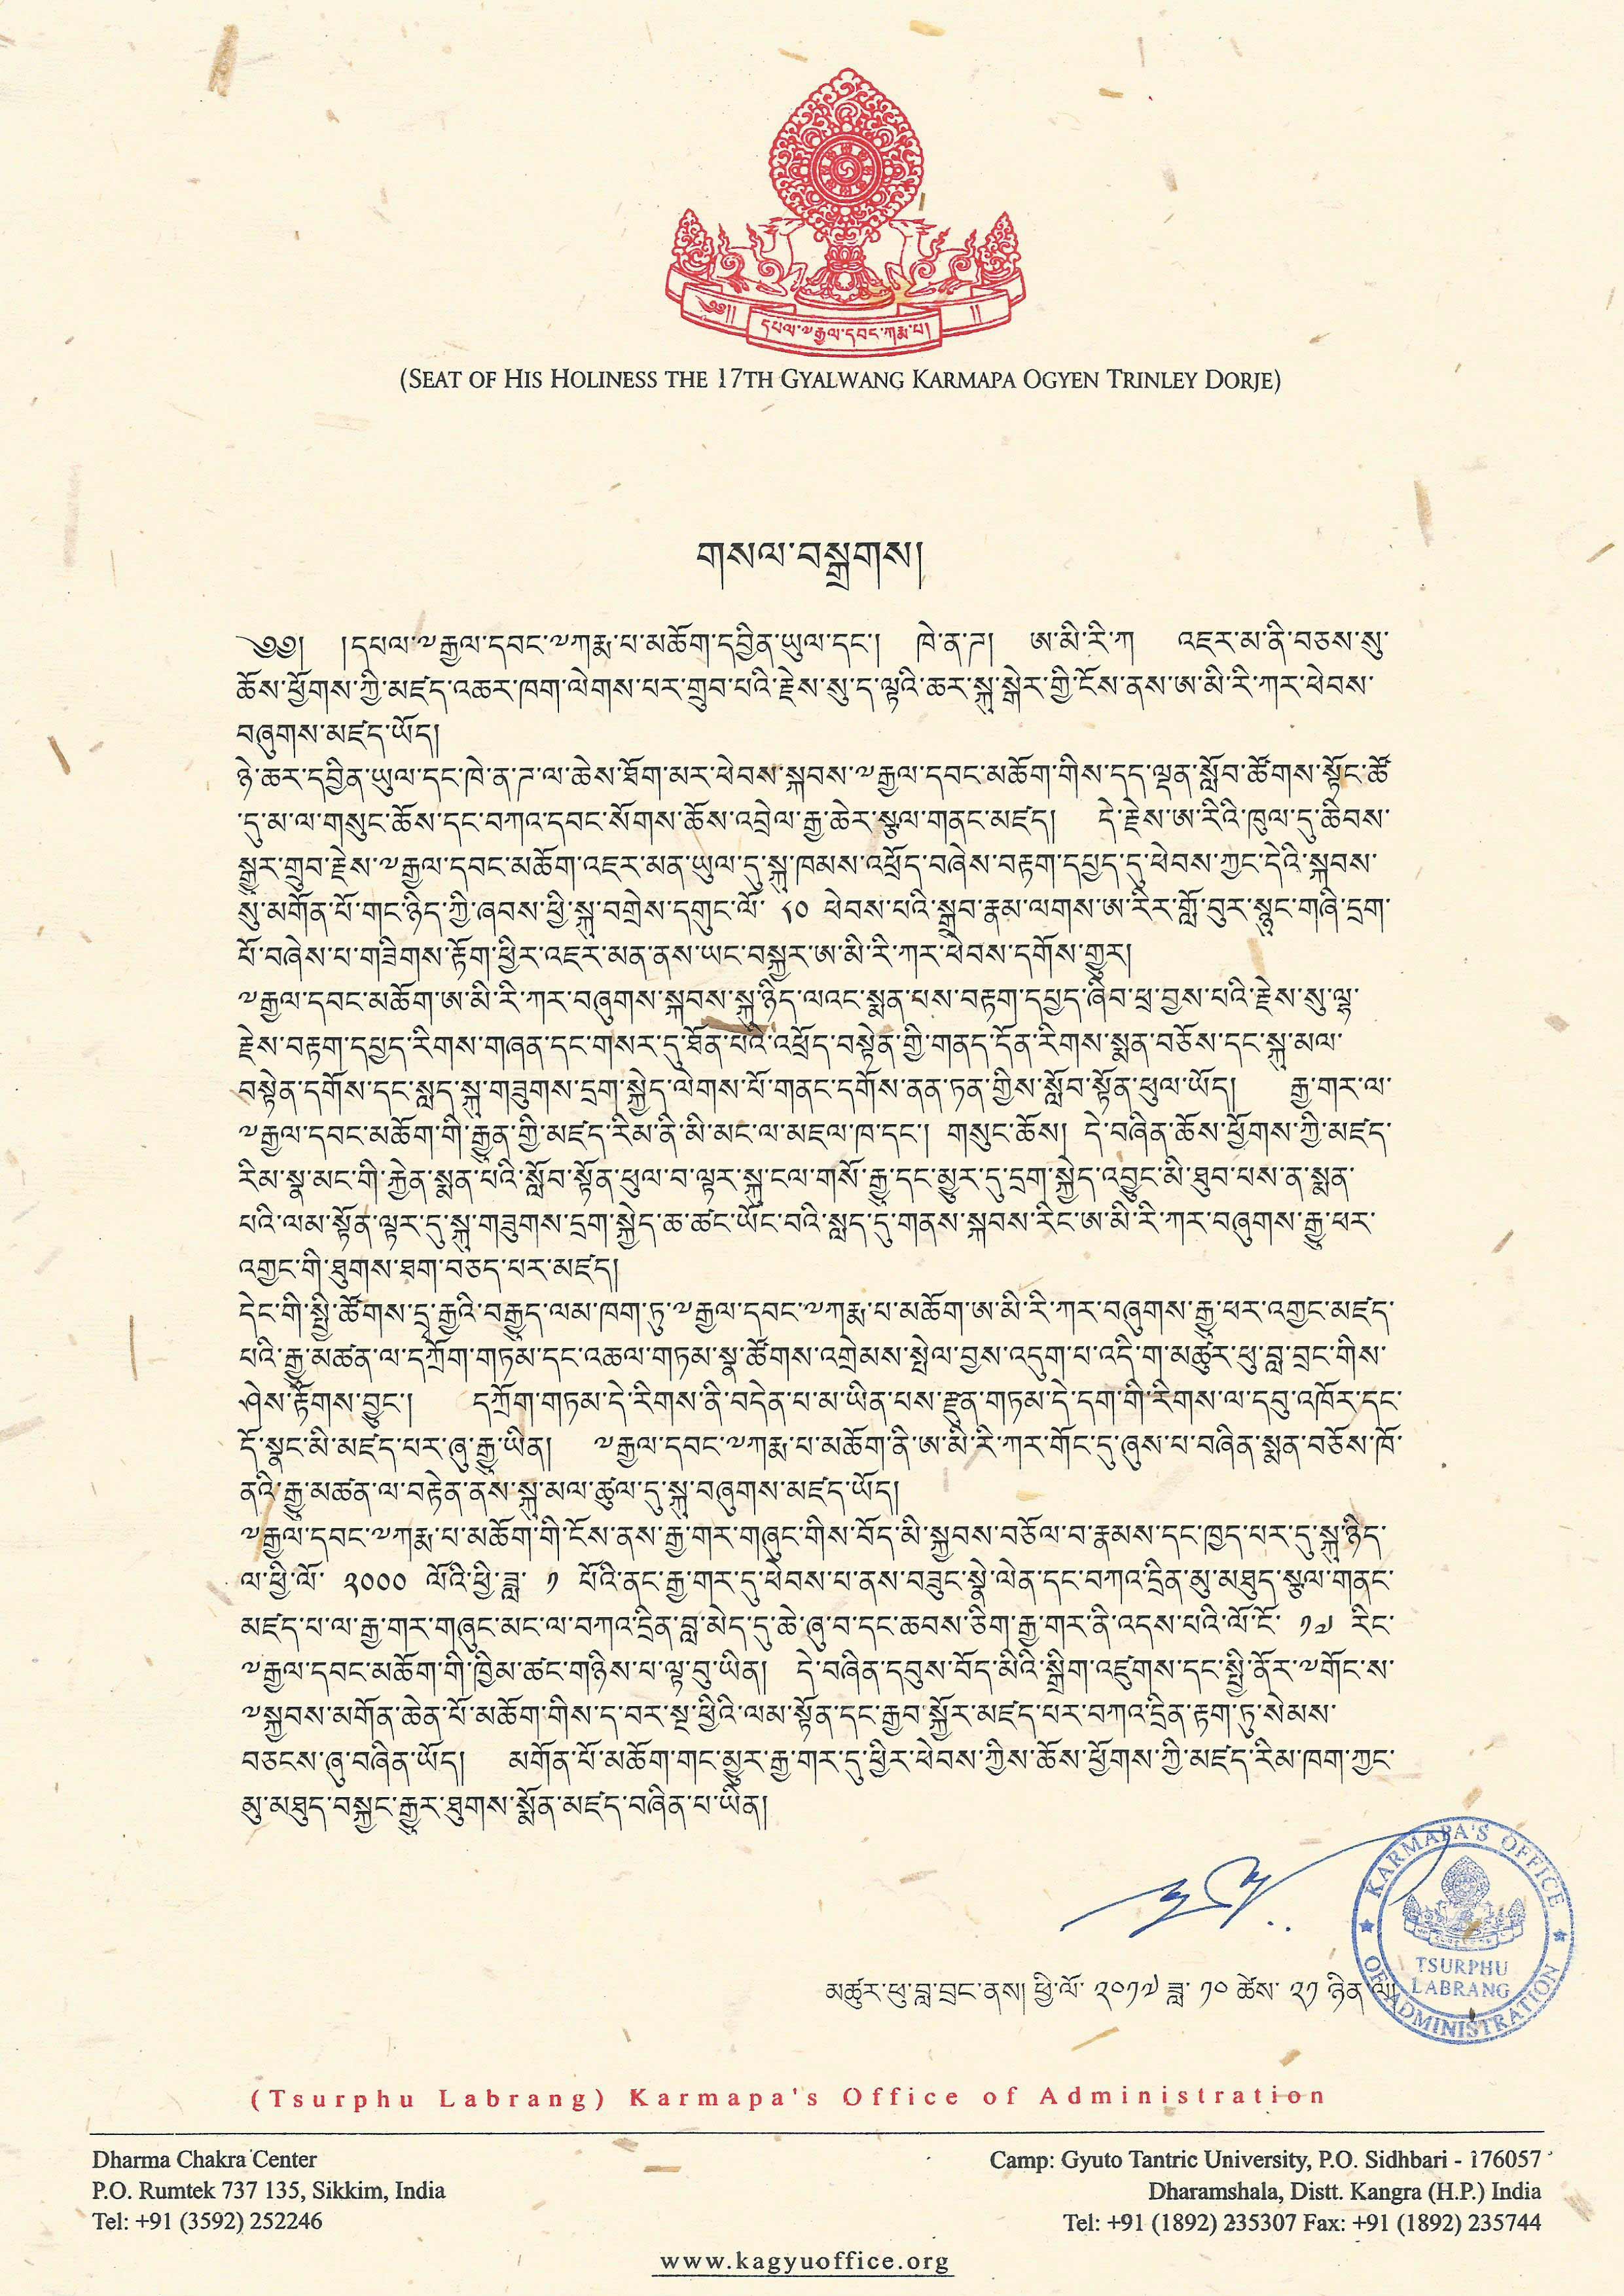 ༄༅།།
དཔལ་༧རྒྱལ་དབང་ཀརྨ་པ།
།།
(SEAT OF HIS HOLINESS THE 17TH GYALWANG KARMAPA OGYEN TRINLEY DORJE)
གསལ་བསྒྲགས།
༄༅། །དཔལ་༧རྒྱལ་དབང་༧ཀརྨ་པ་མཆོག་དབྱིན་ཡུལ་དང་། ཁེ་ན་ཌ། ཨ་མི་རི་ཀ འཇར་མ་ནི་བཅས་སུ་
ཆོས་ཕྱོགས་ཀྱི་མཛད་འཆར་ཁག་ལེགས་པར་གྲུབ་པའི་རྗེས་སུ་ད་ལྟའི་ཆར་སྐུ་སྒེར་གྱི་ངོས་ནས་ཨ་མི་རི་ཀར་ཕེབས་
བཞུགས་མཛད་ཡོད།
ཉེ་ཆར་དབྱིན་ཡུལ་དང་ཁེ་ན་ཌ་ལ་ཆེས་ཐོག་མར་ཕེབས་སྐབས་༧རྒྱལ་དབང་མཆོག་གིས་དད་ལྡན་སློབ་ཚོགས་སྟོང་ཚོ
་དུ་མ་ལ་གསུང་ཆོས་དང་བཀའ་དབང་སོགས་ཆོས་འབྲེལ་རྒྱ་ཆེར་སྩལ་གནང་མཛད། དེ་རྗེས་ཨ་རིའི་ཁུལ་དུ་ཆིབས་
སྒྱུར་གྲུབ་རྗེས་༧རྒྱལ་དབང་མཆོག་འཇར་མན་ཡུལ་དུ་སྐུ་ཁམས་འཕྲོད་བཞེས་བརྟག་དཔྱད་དུ་ཕེབས་ཀྱང་དེའི་སྐབས་
སུ་མགོན་པོ་གང་ཉིད་ཀྱི་ཞབས་ཕྱི་སྐུ་བགྲེས་དགུང་ལོ་ ༨༠ ཕེབས་པའི་སྒྲུབ་རྣམ་ལགས་ཨ་རིར་གློ་བུར་སྙུང་གཞི་དྲག་
པོ་བཞེས་པ་གཟིགས་རྟོག་ཕྱིར་འཇར་མན་ནས་ཡང་བསྐྱར་ཨ་མི་རི་ཀར་ཕེབས་དགོས་གྱུར།
༧རྒྱལ་དབང་མཆོག་ཨ་མི་རི་ཀར་བཞུགས་སྐབས་སྐུ་ཉིད་ལའང་སྨན་པས་བརྟག་དཔྱད་ཞིབ་ཕྲ་བྱས་པའི་རྗེས་སུ་ལྷ་
རྗེས་བརྟག་དཔྱད་རིགས་གཞན་དང་གསར་དུ་ཐོན་པའི་འཕྲོད་བསྟེན་གྱི་གནད་དོན་རིགས་སྨན་བཅོས་དང་སྐུ་མལ་
བསྟེན་དགོས་དང་སླད་སྐུ་གཟུགས་དྲག་སྐྱེད་ལེགས་པོ་གནང་དགོས་ནན་ཏན་གྱིས་སློབ་སྟོན་ཕུལ་ཡོད། རྒྱ་གར་ལ་
༧རྒྱལ་དབང་མཆོག་གི་རྒྱུན་གྱི་མཛད་རིམ་ནི་མི་མང་ལ་མཇལ་ཁ་དང་། གསུང་ཆོས། དེ་བཞིན་ཆོས་ཕྱོགས་ཀྱི་མཛད་
རིམ་སྣ་མང་གི་རྐྱེན་སྨན་པའི་སློབ་སྟོན་ཕུལ་བ་ལྟར་སྐུ་ངལ་གསོ་རྒྱུ་དང་མྱུར་དུ་དྲག་སྐྱེད་འབྱུང་མི་ཐུབ་པས་ན་སྨན་
པའི་ལམ་སྟོན་ལྟར་དུ་སྐུ་གཟུགས་དྲག་སྐྱེད་ཆ་ཚང་ཡོང་བའི་སླད་དུ་གནས་སྐབས་རིང་ཨ་མི་རི་ཀར་བཞུགས་རྒྱུ་ཕར་
འགྱང་གི་ཐུགས་ཐག་བཅད་པར་མཛད།
དེང་གི་སྤྱི་ཚོགས་དྲྭ་རྒྱའི་བརྒྱུད་ལམ་ཁག་ཏུ་༧རྒྱལ་དབང་༧ཀརྨ་པ་མཆོག་ཨ་མི་རི་ཀར་བཞུགས་རྒྱུ་ཕར་འགྱང་མཛད་
པའི་རྒྱུ་མཚན་ལ་དཀྲོག་གཏམ་དང་འཆལ་གཏམ་སྣ་ཚོགས་འགྲེམས་སྤེལ་བྱས་འདུག་པ་འདི་ག་མཚུར་ཕུ་བླ་བྲང་གིས་
ཤེས་རྟོགས་བྱུང་། དཀྲོག་གཏམ་དེ་རིགས་ནི་བདེན་པ་མ་ཡིན་པས་རྫུན་གཏམ་དེ་དག་གི་རིགས་ལ་དབུ་འཁོར་དང་
དོ་སྣང་མི་མཛད་པར་ཞུ་རྒྱུ་ཡིན། ༧རྒྱལ་དབང་༧ཀརྨ་པ་མཆོག་ནི་ཨ་མི་རི་ཀར་གོང་དུ་ཞུས་པ་བཞིན་སྨན་བཅོས་ཁོ་
ནའི་རྒྱུ་མཚན་ལ་བརྟེན་ནས་སྐུ་མལ་ཚུལ་དུ་སྐུ་བཞུགས་མཛད་ཡོད།
༧རྒྱལ་དབང་༧ཀརྨ་པ་མཆོག་གི་ངོས་ནས་རྒྱ་གར་གཞུང་གིས་བོད་མི་སྐྱབས་བཅོལ་བ་རྣམས་དང་ཁྱད་པར་དུ་སྐུ་ཉིད་
ལ་ཕྱི་ལོ་ ༢༠༠༠ ལོའི་ཕྱི་ཟླ་ ༡ པོའི་ནང་རྒྱ་གར་དུ་ཕེབས་པ་ནས་བཟུང་སྣེ་ལེན་དང་བཀའ་དྲིན་མུ་མཐུད་སྩལ་གནང་
མཛད་པ་ལ་རྒྱ་གར་གཞུང་མང་ལ་བཀའ་དྲིན་བླ་མེད་དུ་ཆེ་ཞུ་བ་དང་ཆབས་ཅིག་རྒྱ་གར་ནི་འདས་པའི་ལོ་ངོ་ ༡༧ རིང་
༧རྒྱལ་དབང་མཆོག་གི་ཁྱིམ་ཚང་གཉིས་པ་ལྟ་བུ་ཡིན། དེ་བཞིན་དབུས་བོད་མིའི་སྒྲིག་འཛུགས་དང་སྤྱི་ནོར་༧གོང་ས་
༧སྐྱབས་མགོན་ཆེན་པོ་མཆོག་གིས་ད་བར་སྔ་ཕྱིའི་ལམ་སྟོན་དང་རྒྱབ་སྐྱོར་མཛད་པར་བཀའ་དྲིན་རྟག་ཏུ་སེམས་
བཅངས་ཞུ་བཞིན་ཡོད། མགོན་པོ་མཆོག་གང་མྱུར་རྒྱ་གར་དུ་ཕྱིར་ཕེབས་ཀྱིས་ཆོས་ཕྱོགས་ཀྱི་མཛད་རིམ་ཁག་ཀྱང་
མུ་མཐུད་བསྐྱང་རྒྱུར་ཐུགས་སྨོན་མཛད་བཞིན་པ་ཡིན།
KARMAPA'S OFFICE
OF ADMINISTRATION
TSURPHU
LABRANG
མཚུར་ཕུ་བླ་བྲང་ནས། ཕྱི་ལོ་ ༢༠༡༧ ཟླ་ ༡༠ ཚེས་ ༢༡ ཉིན་ལ།
(Tsurphu Labrang) Karmapa's Office of Administration
Dharma Chakra Center
P.O. Rumtek 737 135, Sikkim, India
Tel: +91 (3592) 252246
Camp: Gyuto Tantric University, P.O. Sidhbari - 176057
Dharamshala, Distt. Kangra (H.P.) India
Tel: +91 (1892) 235307 Fax: +91 (1892) 235744
www.kagyuoffice.org